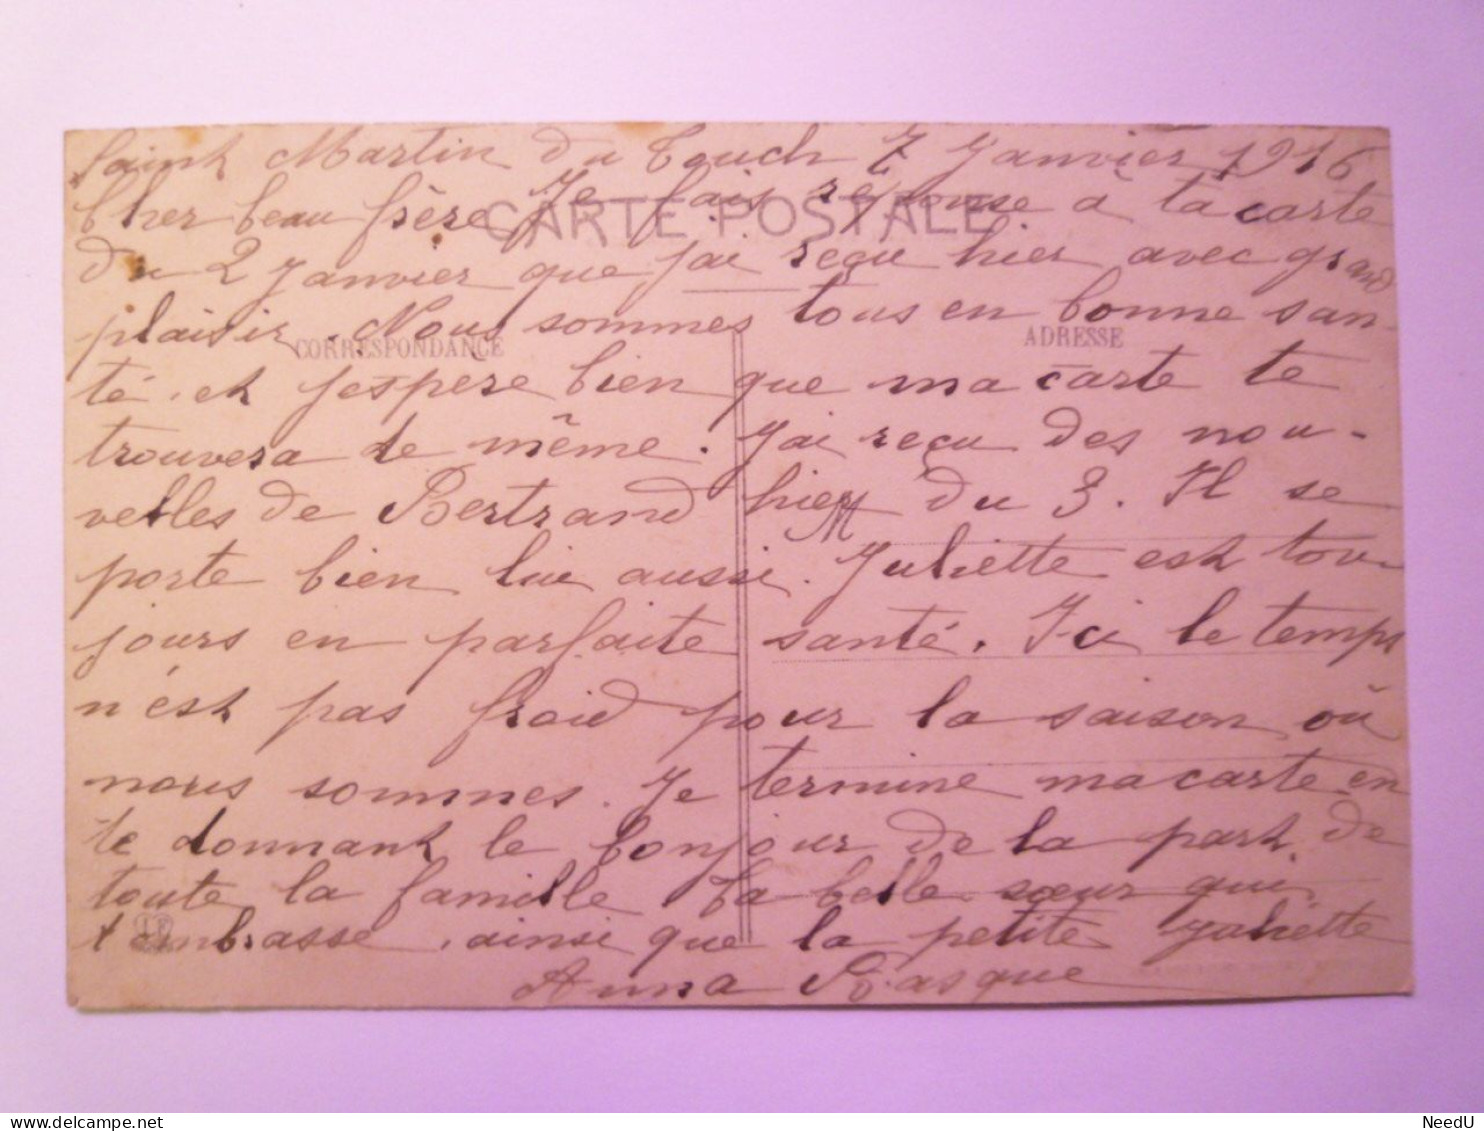 Saint Martin du Touch 7 Janvier 1916
Cher beau frère Je fais reponse à ta carte
CARTE POSTALE
du 2 Janvier que j'ai reçu hier avec grand
plaisir. Nous sommes tous en bonne san-
CORRESPONDANCE
ADRESSE
té. et j'espere bien que ma carte te
trouvera de même. J'ai reçu des nou-
velles de Bertrand hier du 3. Il se
porte bien lui aussi. Juliette est tou-
jours en parfaite santé. Ici le temps
n'est pas froid pour la saison où
nous sommes. Je termine ma carte en
te donnant le bonjour de la part de
toute la famille Ta belle sœur qui
t'embrasse. ainsi que la petite Juliette
Anna Rasque
NeedU